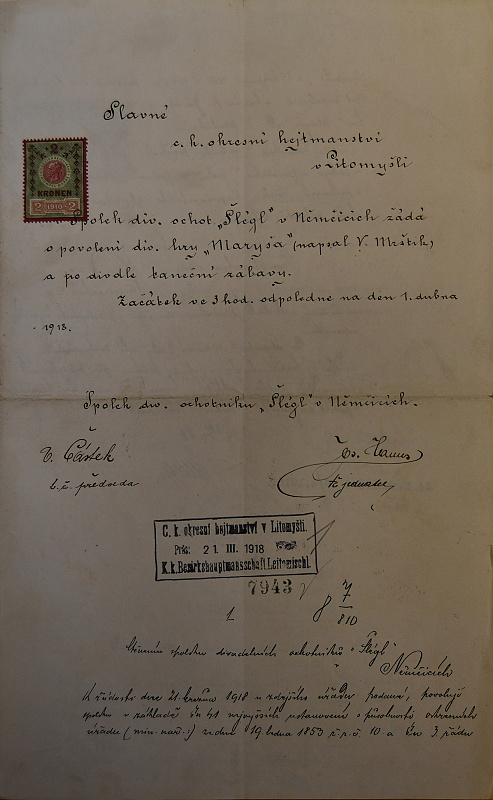 Slavné
c. k. okresní hejtmanství
v Litomyšli
2
KRONEN
2 1910 2
Spolek div. ochot. „Šlégl" v Němčicích žádá
o povolení div. hry „Maryša" (napsal V. Mrštík)
a po divdle taneční zábavy.
Začátek ve 3 hod. odpoledne na den 1. dubna
1918.
Spolek div. ochotníků „Šlégl" v Němčicích.
V. Částek
t. č. předseda
Hanus
jednatel
C. k. okresní hejtmanství v Litomyšli.
Präs: 21. III. 1918
K.k. Bezirkshauptmannschaft Leitomischl.
7943
8 7/810
1.
spolku divadelních ochotníků „Šlégl"
Němčicích
K žádosti dne 21. března 1918 u zdejšího úřadu podané, povoluji
spolku v základě čn 41 nejvyšších ustanovení o působnosti okresních
úřadů (min. nař.) ze dne 19. ledna 1853 č. 10 a čn 3. řádu